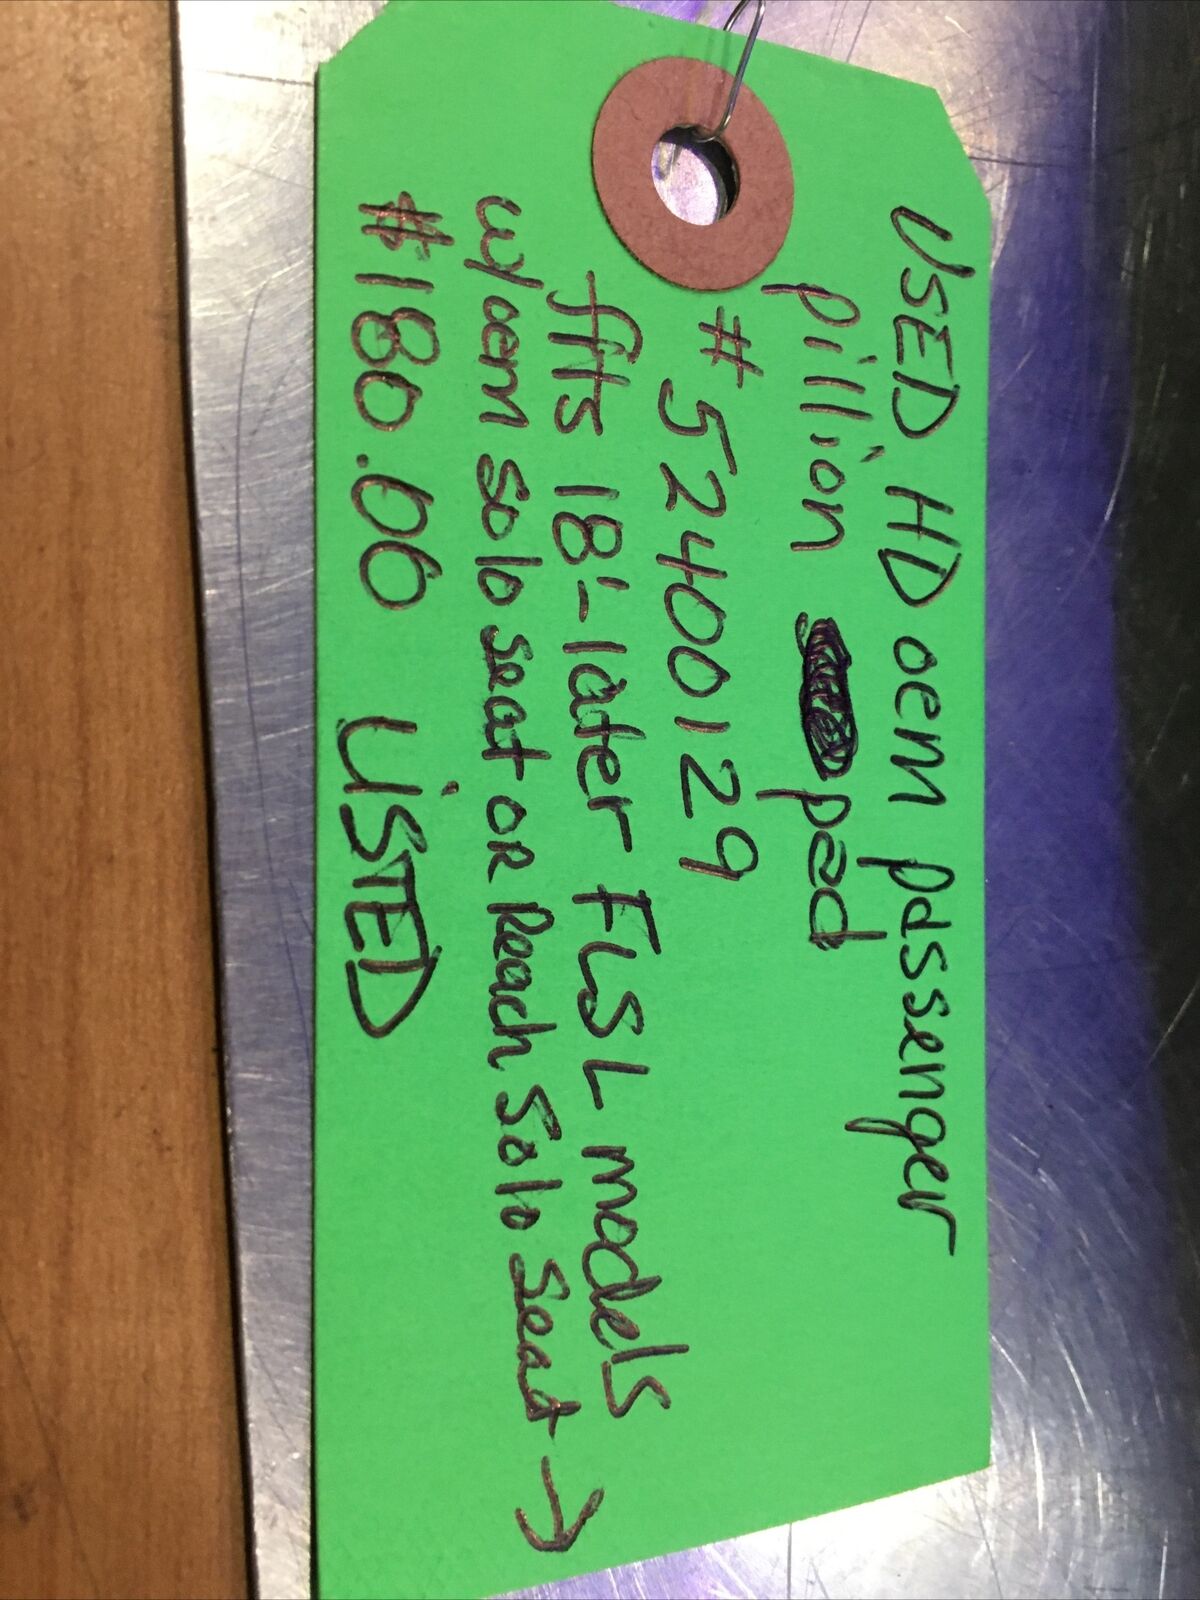 USED HD oem passenger
pillion pad
#52400129
fits 18'-later FLSL models
w/oem solo seat or Reach Solo Seat →
#180.00 LISTED